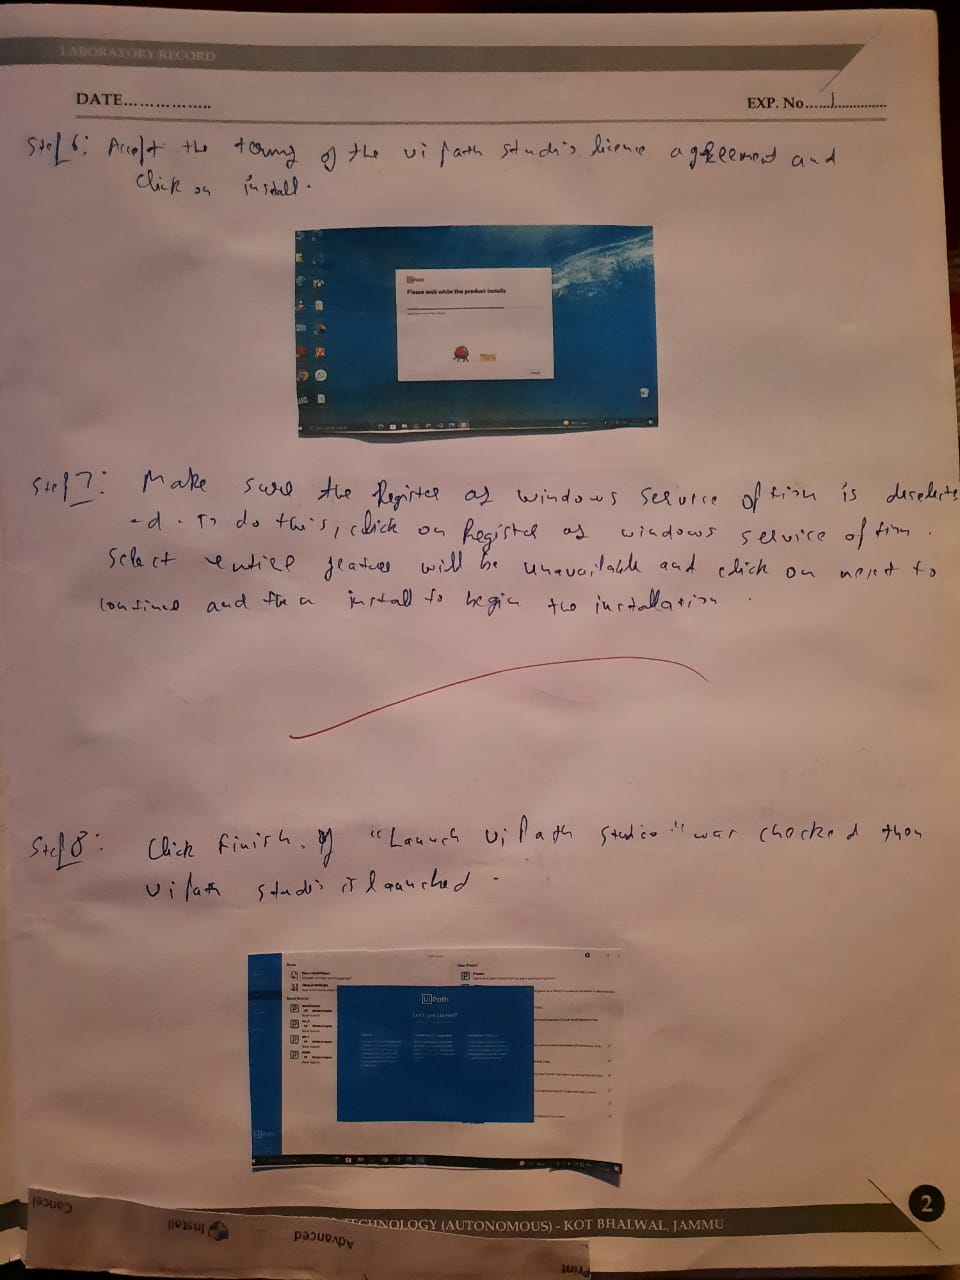 LABORATORY RECORD
DATE................
EXP. No.....1..............
Step 6: Accept the terms of the ui path studio license agreement and
Click on install.
UiPath
Please wait while the product installs
Step 7: Make sure the Register as windows service option is deselecte
-d. To do this, click on Register as windows service option.
Select entire feature will be unavailable and click on next to
continue and then install to begin the installation.
Step 8: Click finish. If "Launch Ui Path Studio" was checked then
Ui Path studio is launched.
UiPath
Let's get started!
UiPath
2
TECHNOLOGY (AUTONOMOUS) - KOT BHALWAL, JAMMU
Print
Advanced
Install
Cancel